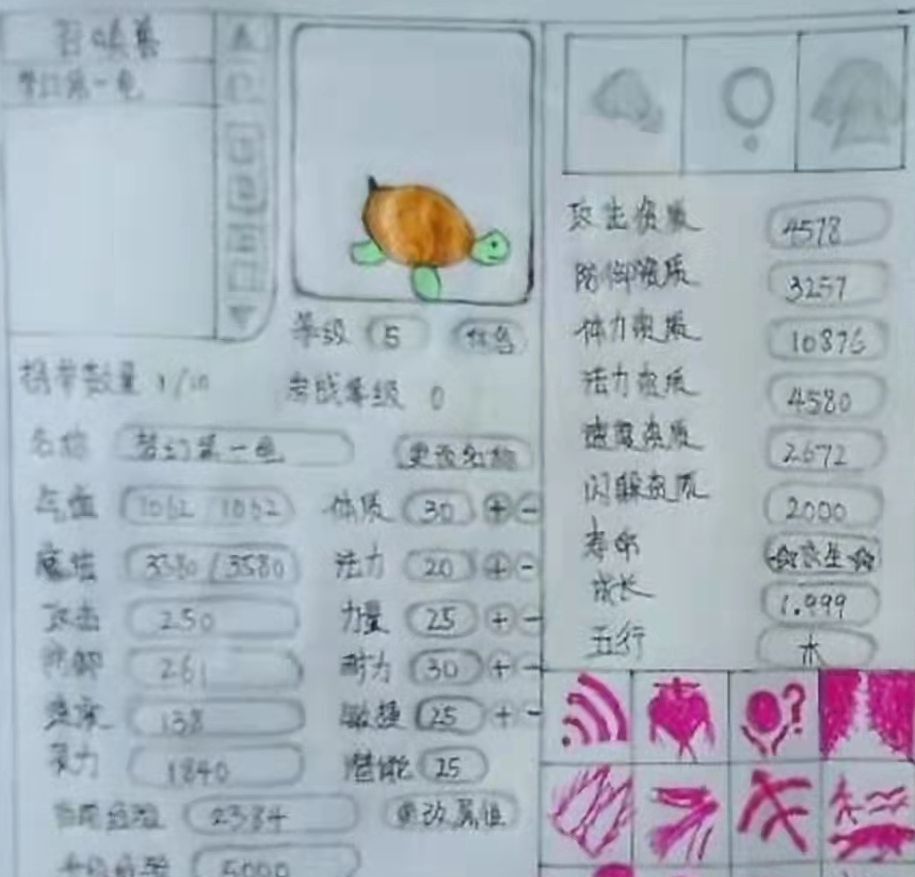 召唤兽
梦幻第一龟
等级 5
携带数量 1/10
参战等级 0
名称 梦幻第一龟 更改名称
气血 1062/1062 体质 30 + -
魔法 3580/3580 法力 20 + -
攻击 250 力量 25 + -
防御 261 耐力 30 + -
速度 138 敏捷 25 + -
灵力 1840 潜能 25
当前经验 2384
升级经验 5000
攻击资质 4578
防御资质 3257
体力资质 10876
法力资质 4580
速度资质 2672
闪躲资质 2000
寿命 ☆永生☆
成长 1.999
五行 木
?